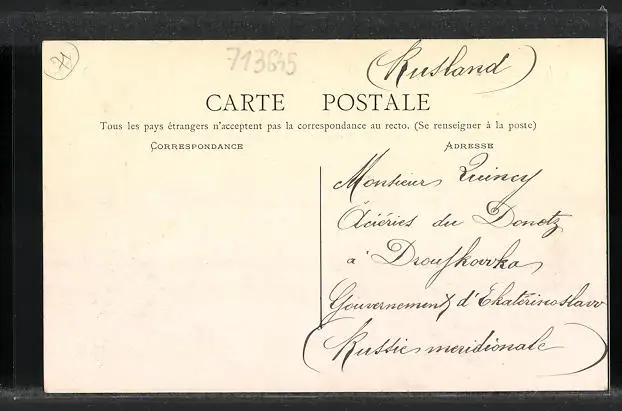 713645
(Rusland)
CARTE POSTALE
Tous les pays étrangers n'acceptent pas la correspondance au recto. (Se renseigner à la poste)
CORRESPONDANCE
ADRESSE
Monsieur Quincy
Aciéries du Donetz
à Droujkovka
Gouvernement d'Ekatérinoslavo
(Russie meridionale)